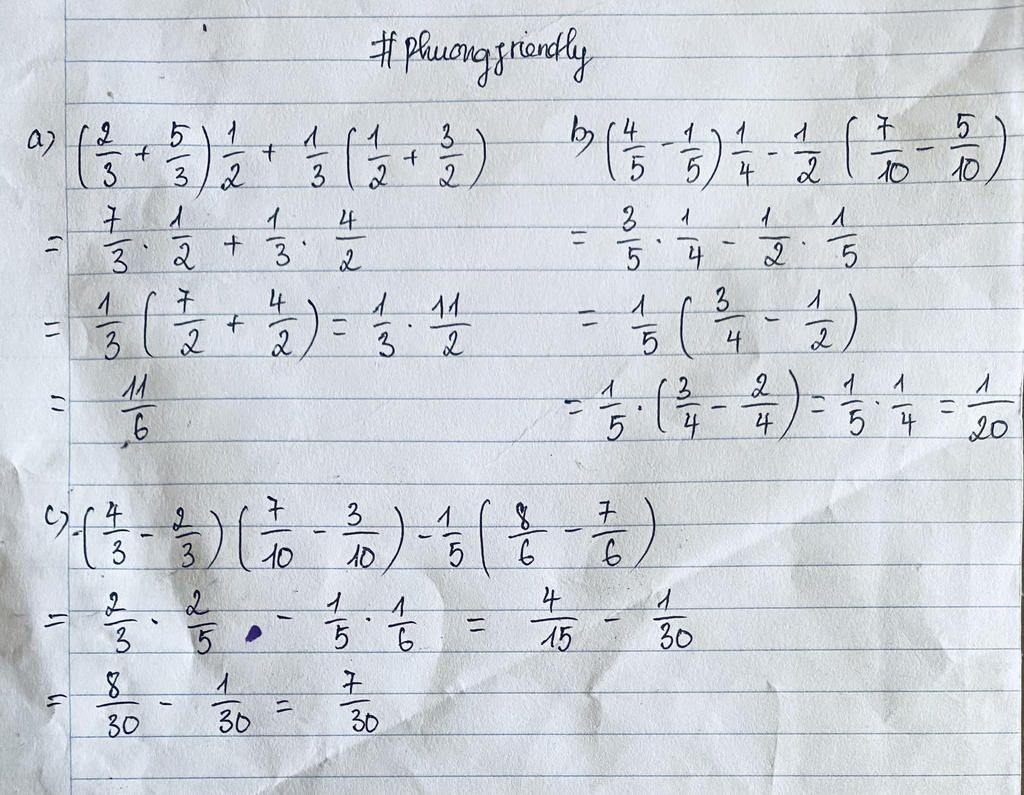 #phuongfriendly
a) (2/3 + 5/3) 1/2 + 1/3 (1/2 + 3/2)
= 7/3 . 1/2 + 1/3 . 4/2
= 1/3 (7/2 + 4/2) = 1/3 . 11/2
= 11/6
b) (4/5 - 1/5) 1/4 - 1/2 (7/10 - 5/10)
= 3/5 . 1/4 - 1/2 . 1/5
= 1/5 (3/4 - 1/2)
= 1/5 . (3/4 - 2/4) = 1/5 . 1/4 = 1/20
c) (4/3 - 2/3) (7/10 - 3/10) - 1/5 (8/6 - 7/6)
= 2/3 . 2/5 - 1/5 . 1/6 = 4/15 - 1/30
= 8/30 - 1/30 = 7/30